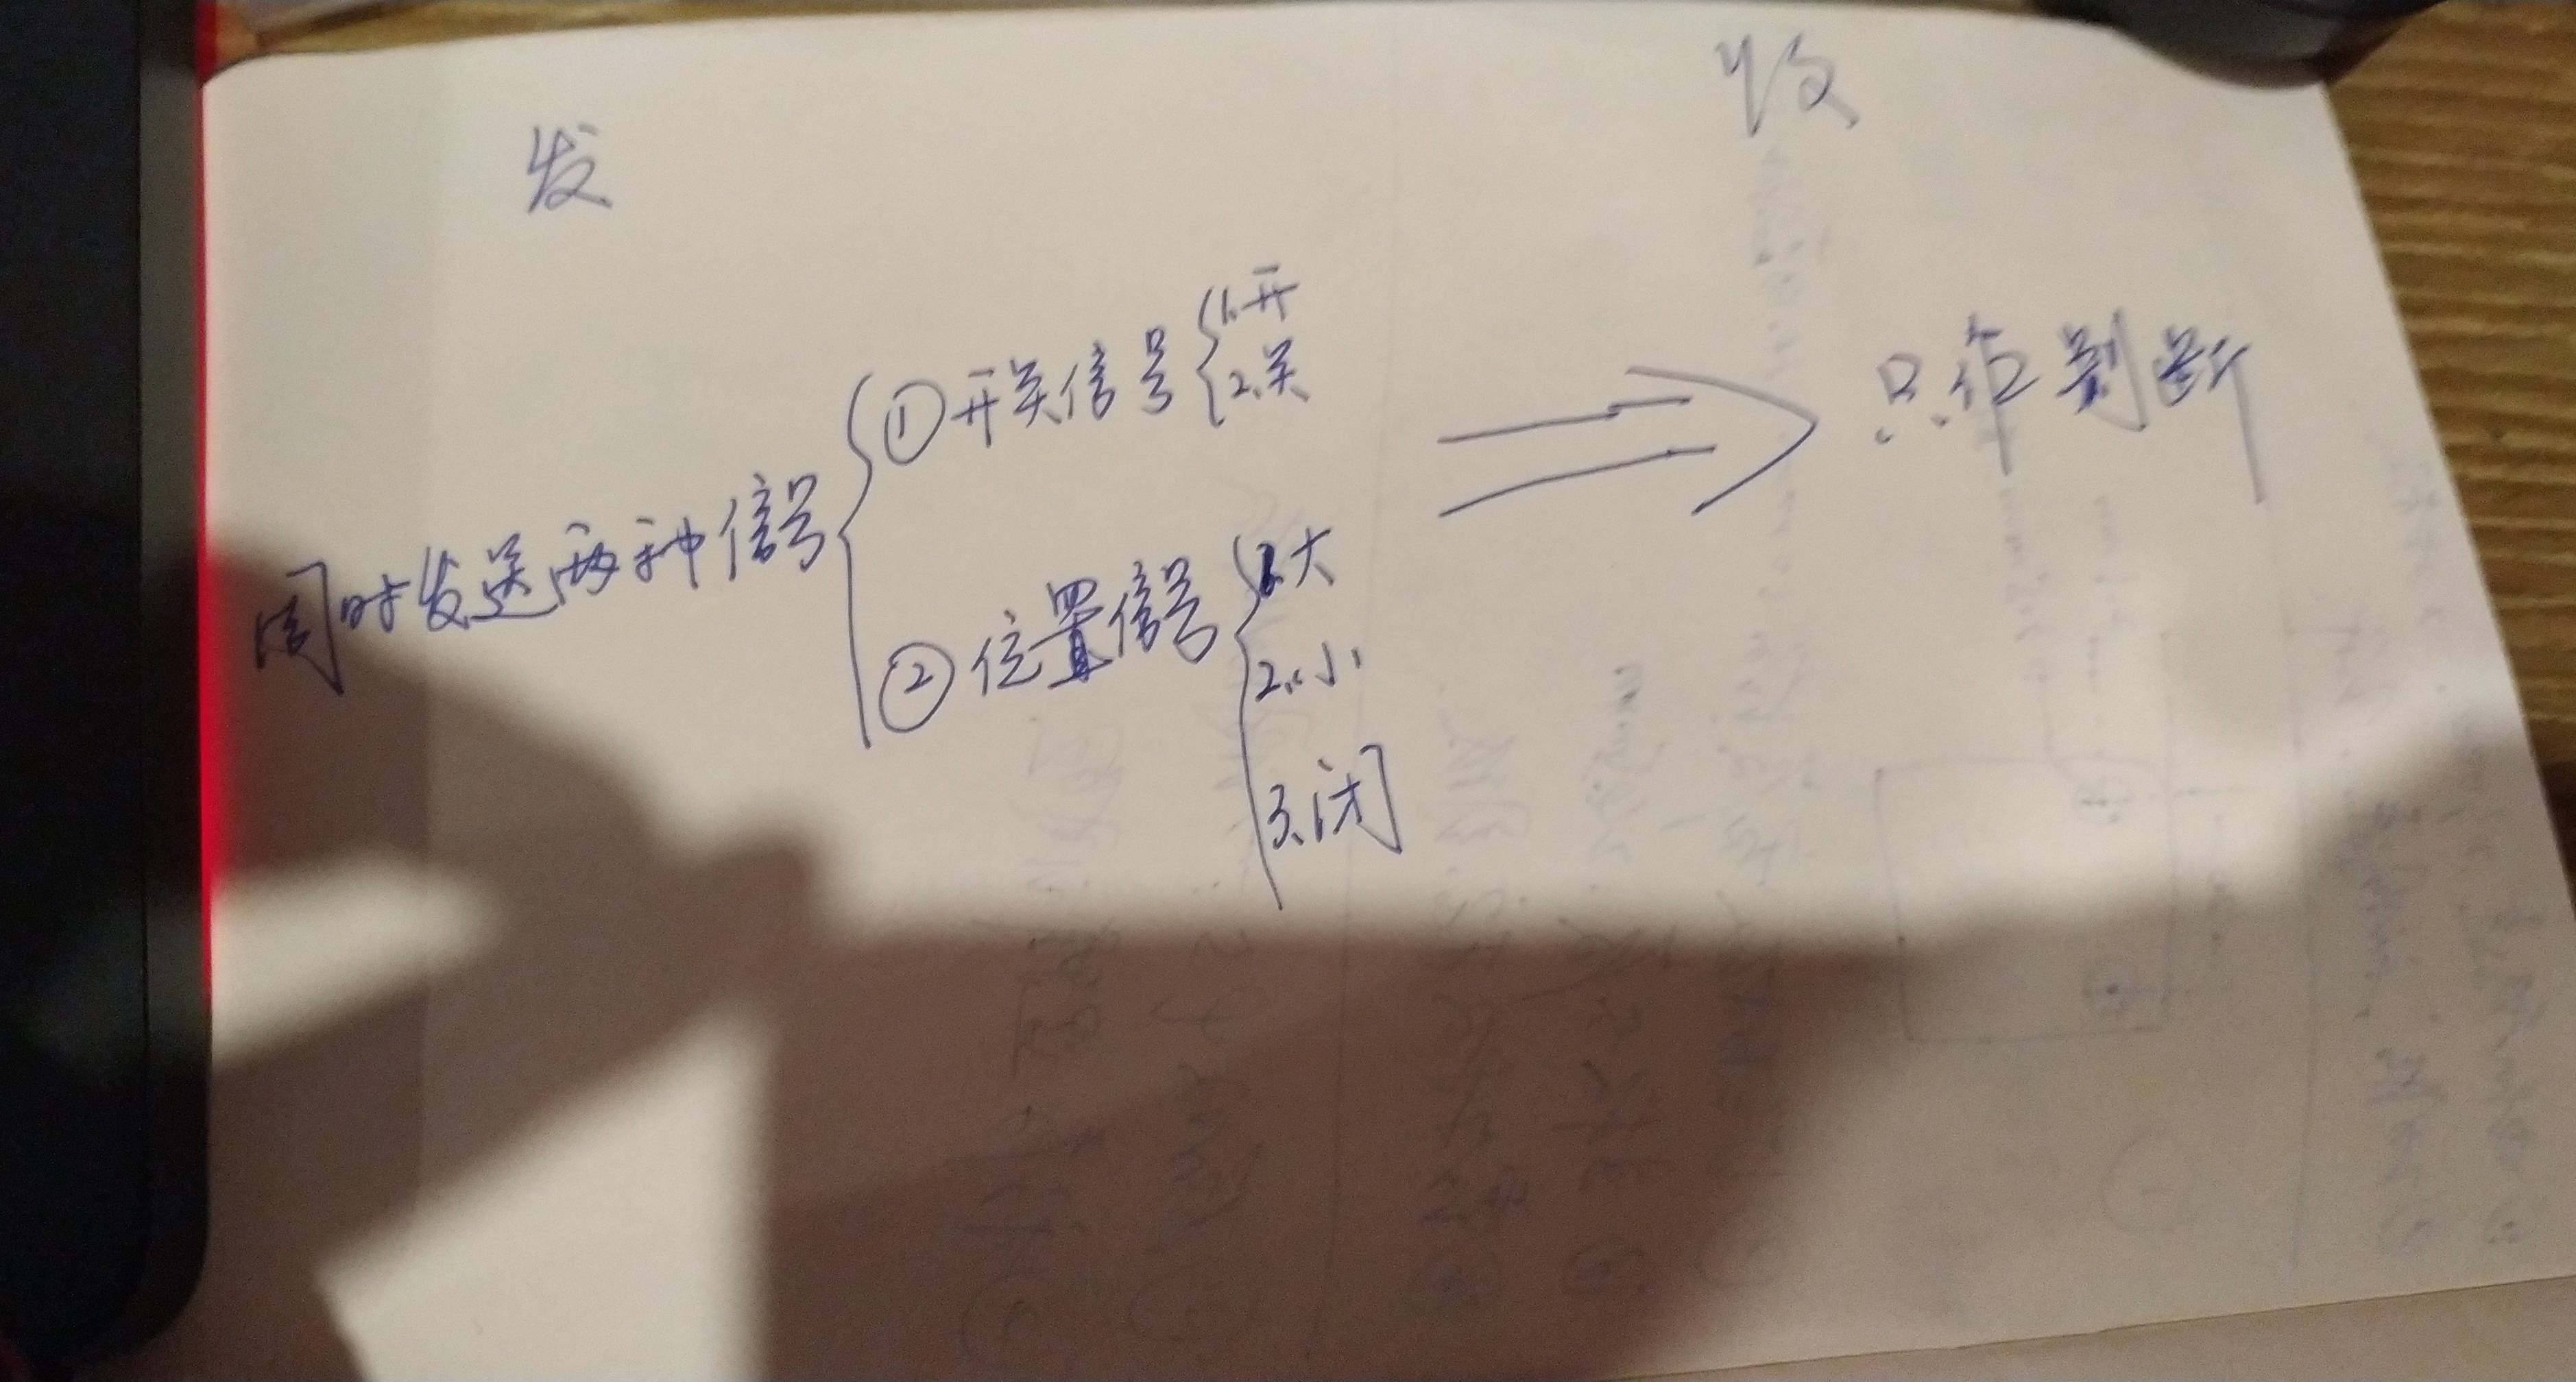 发
收
同时发送两种信号
①开关信号
1.开
2.关
②位置信号
1.大
2.小
3.闭
只作判断